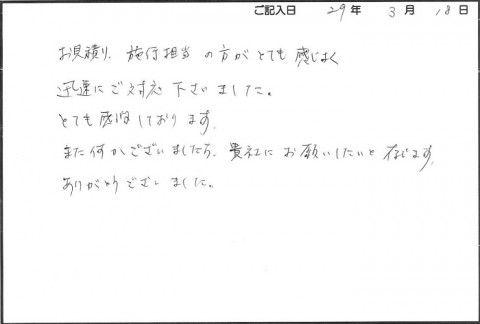 ご記入日 29年 3月 18日
お見積り、施行担当の方がとても感じよく
迅速にご対応下さいました。
とても感謝しております。
また何かございましたら、貴社にお願いしたいと存じます。
ありがとうございました。